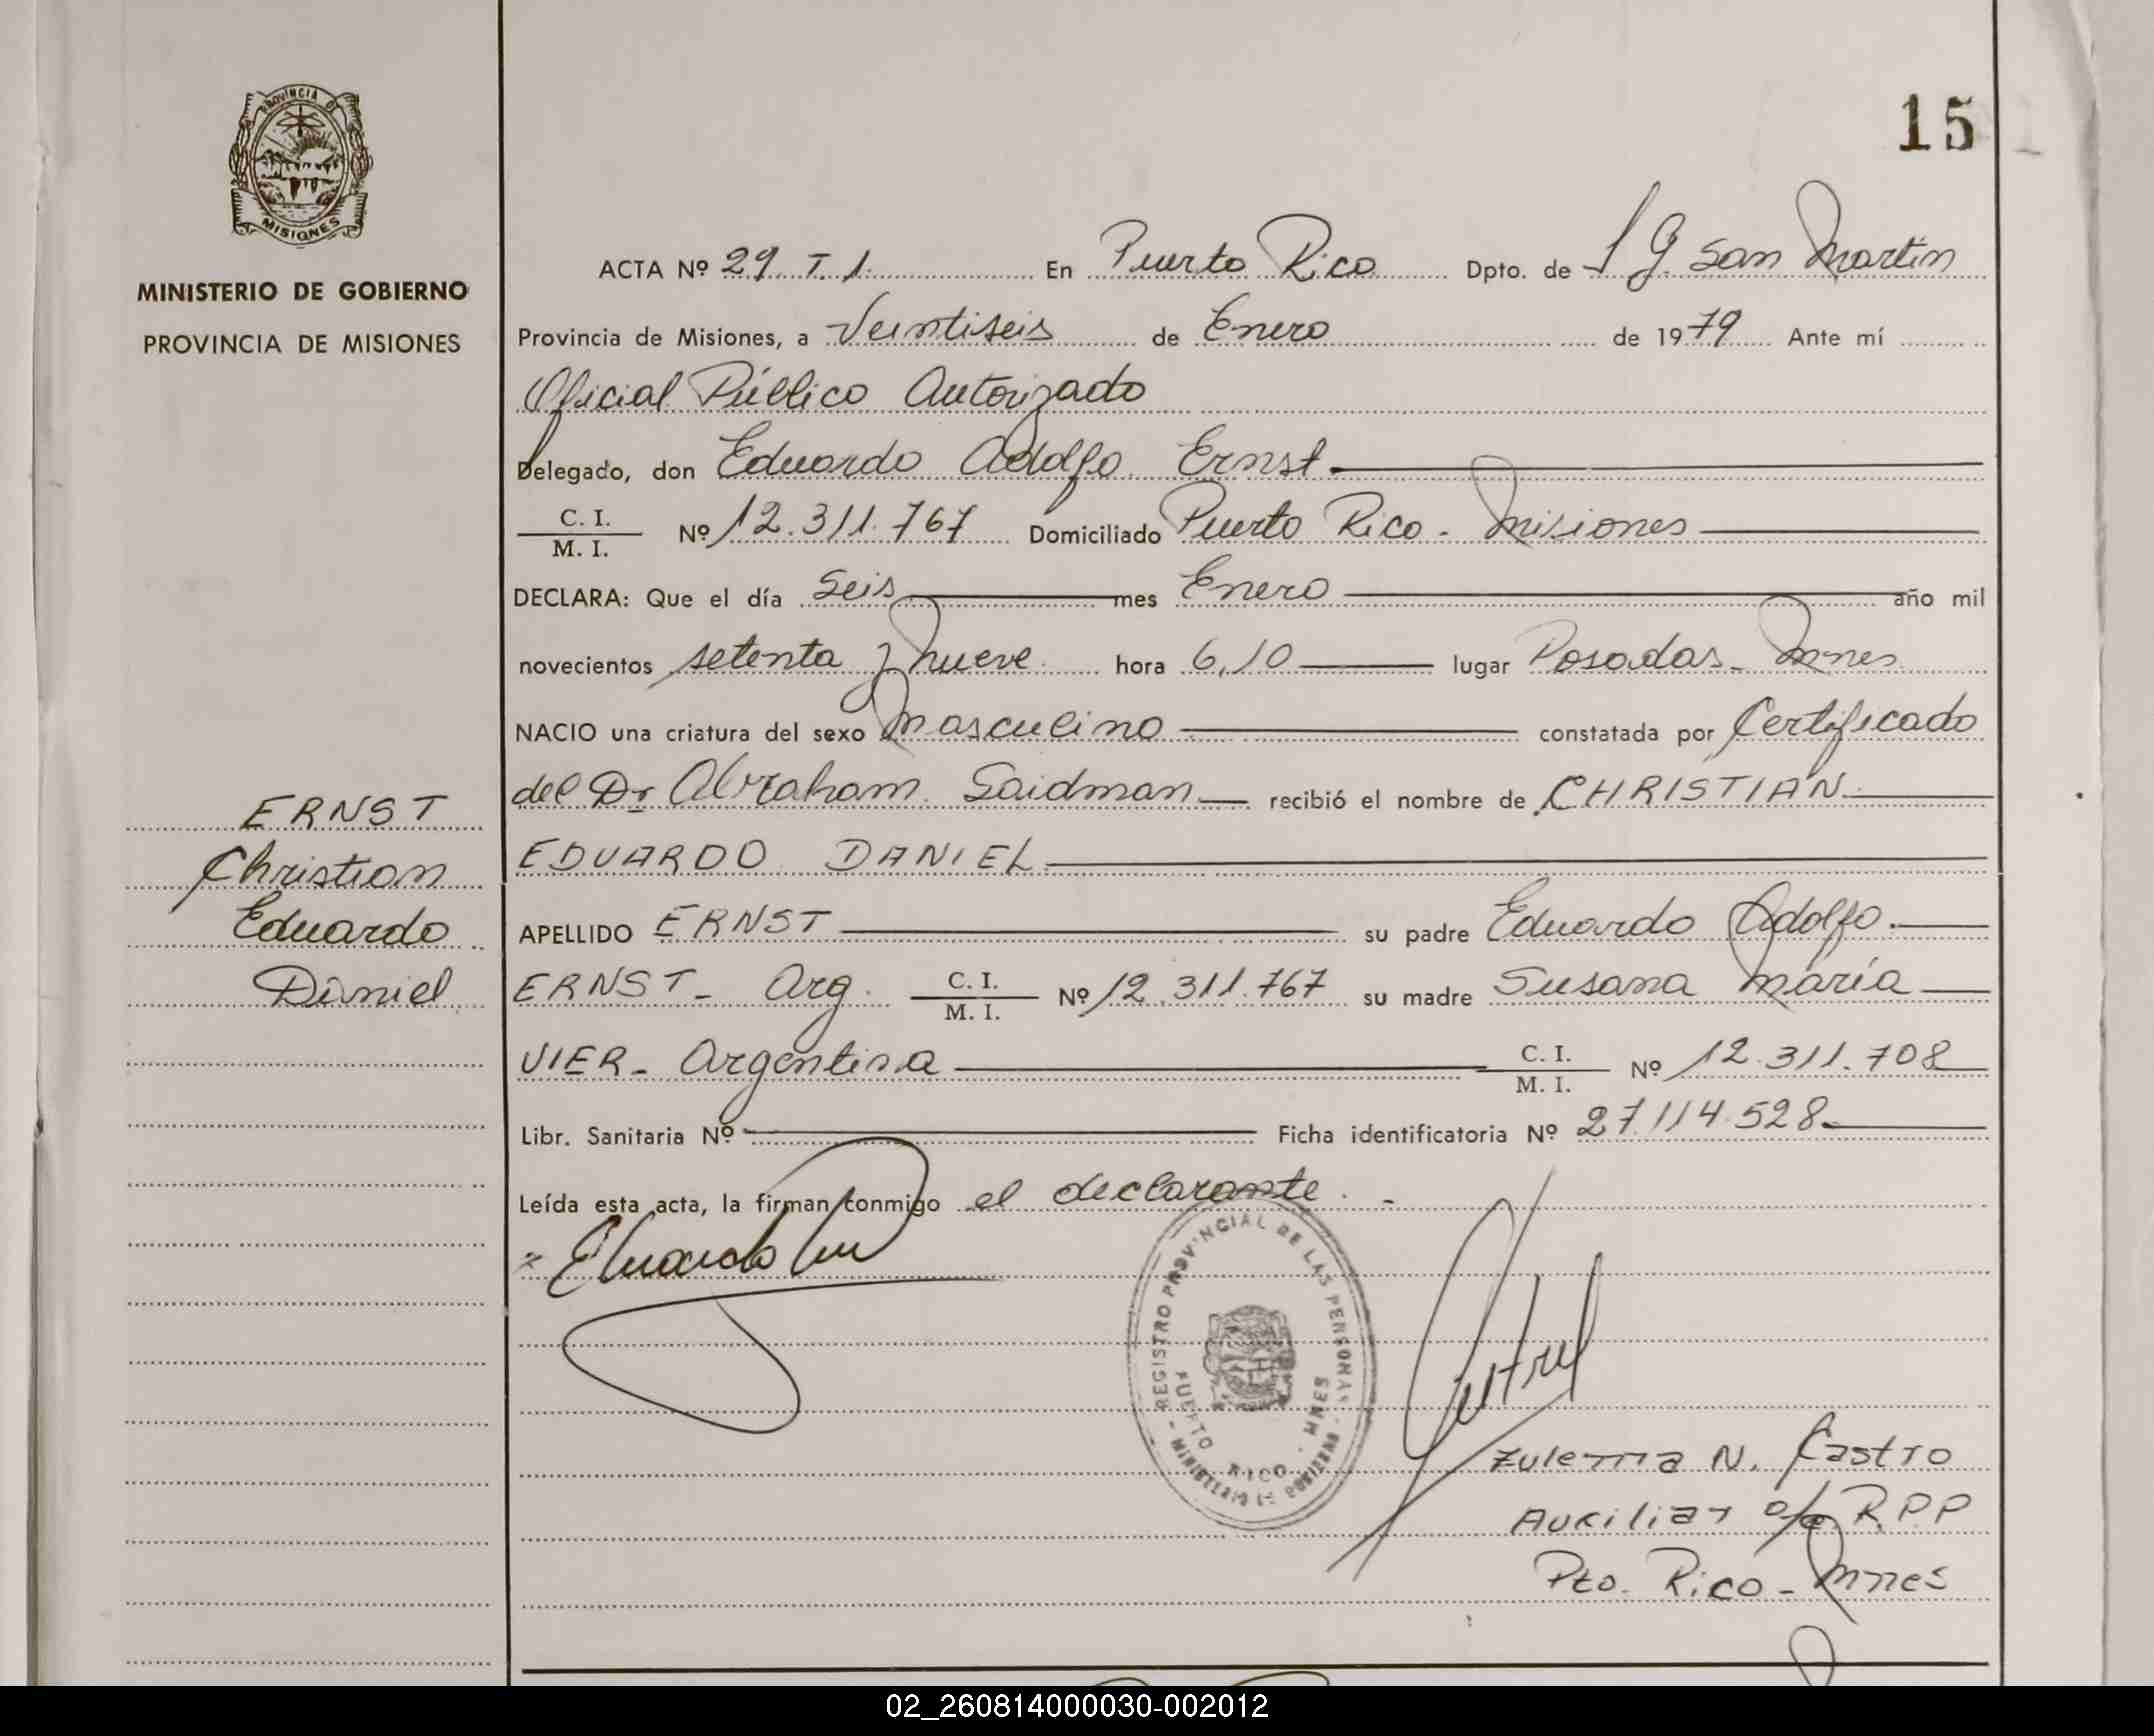 15
PROVINCIA DE
MISIONES
MINISTERIO DE GOBIERNO
PROVINCIA DE MISIONES
ERNST
Christian
Eduardo
Daniel
ACTA Nº 29. T. 1. En Puerto Rico Dpto. de L G. San Martín
Provincia de Misiones, a Veintiseis de Enero de 1979 Ante mí
Oficial Público Autorizado
Delegado, don Eduardo Adolfo Ernst
C. I.
M. I. Nº 12.311.767 Domiciliado Puerto Rico - Misiones
DECLARA: Que el día Seis mes Enero año mil
novecientos setenta y nueve hora 6,10 lugar Posadas - Mnes
NACIO una criatura del sexo Masculino constatada por Certificado
del Dr Abraham Saidman recibió el nombre de CHRISTIAN
EDUARDO DANIEL
APELLIDO ERNST su padre Eduardo Adolfo
ERNST - Arg. C. I.
M. I. Nº 12.311.767 su madre Susana María
VIER - Argentina C. I.
M. I. Nº 12.311.708
Libr. Sanitaria Nº Ficha identificatoria Nº 27.114.528
Leída esta acta, la firman conmigo el declarante. -
REGISTRO PROVINCIAL DE LAS PERSONAS
PUERTO RICO - MNES
MINISTERIO DE GOBIERNO
Zulema N. Castro
Auxiliar R.P.P
Pto. Rico - Mnes
02_260814000030-002012